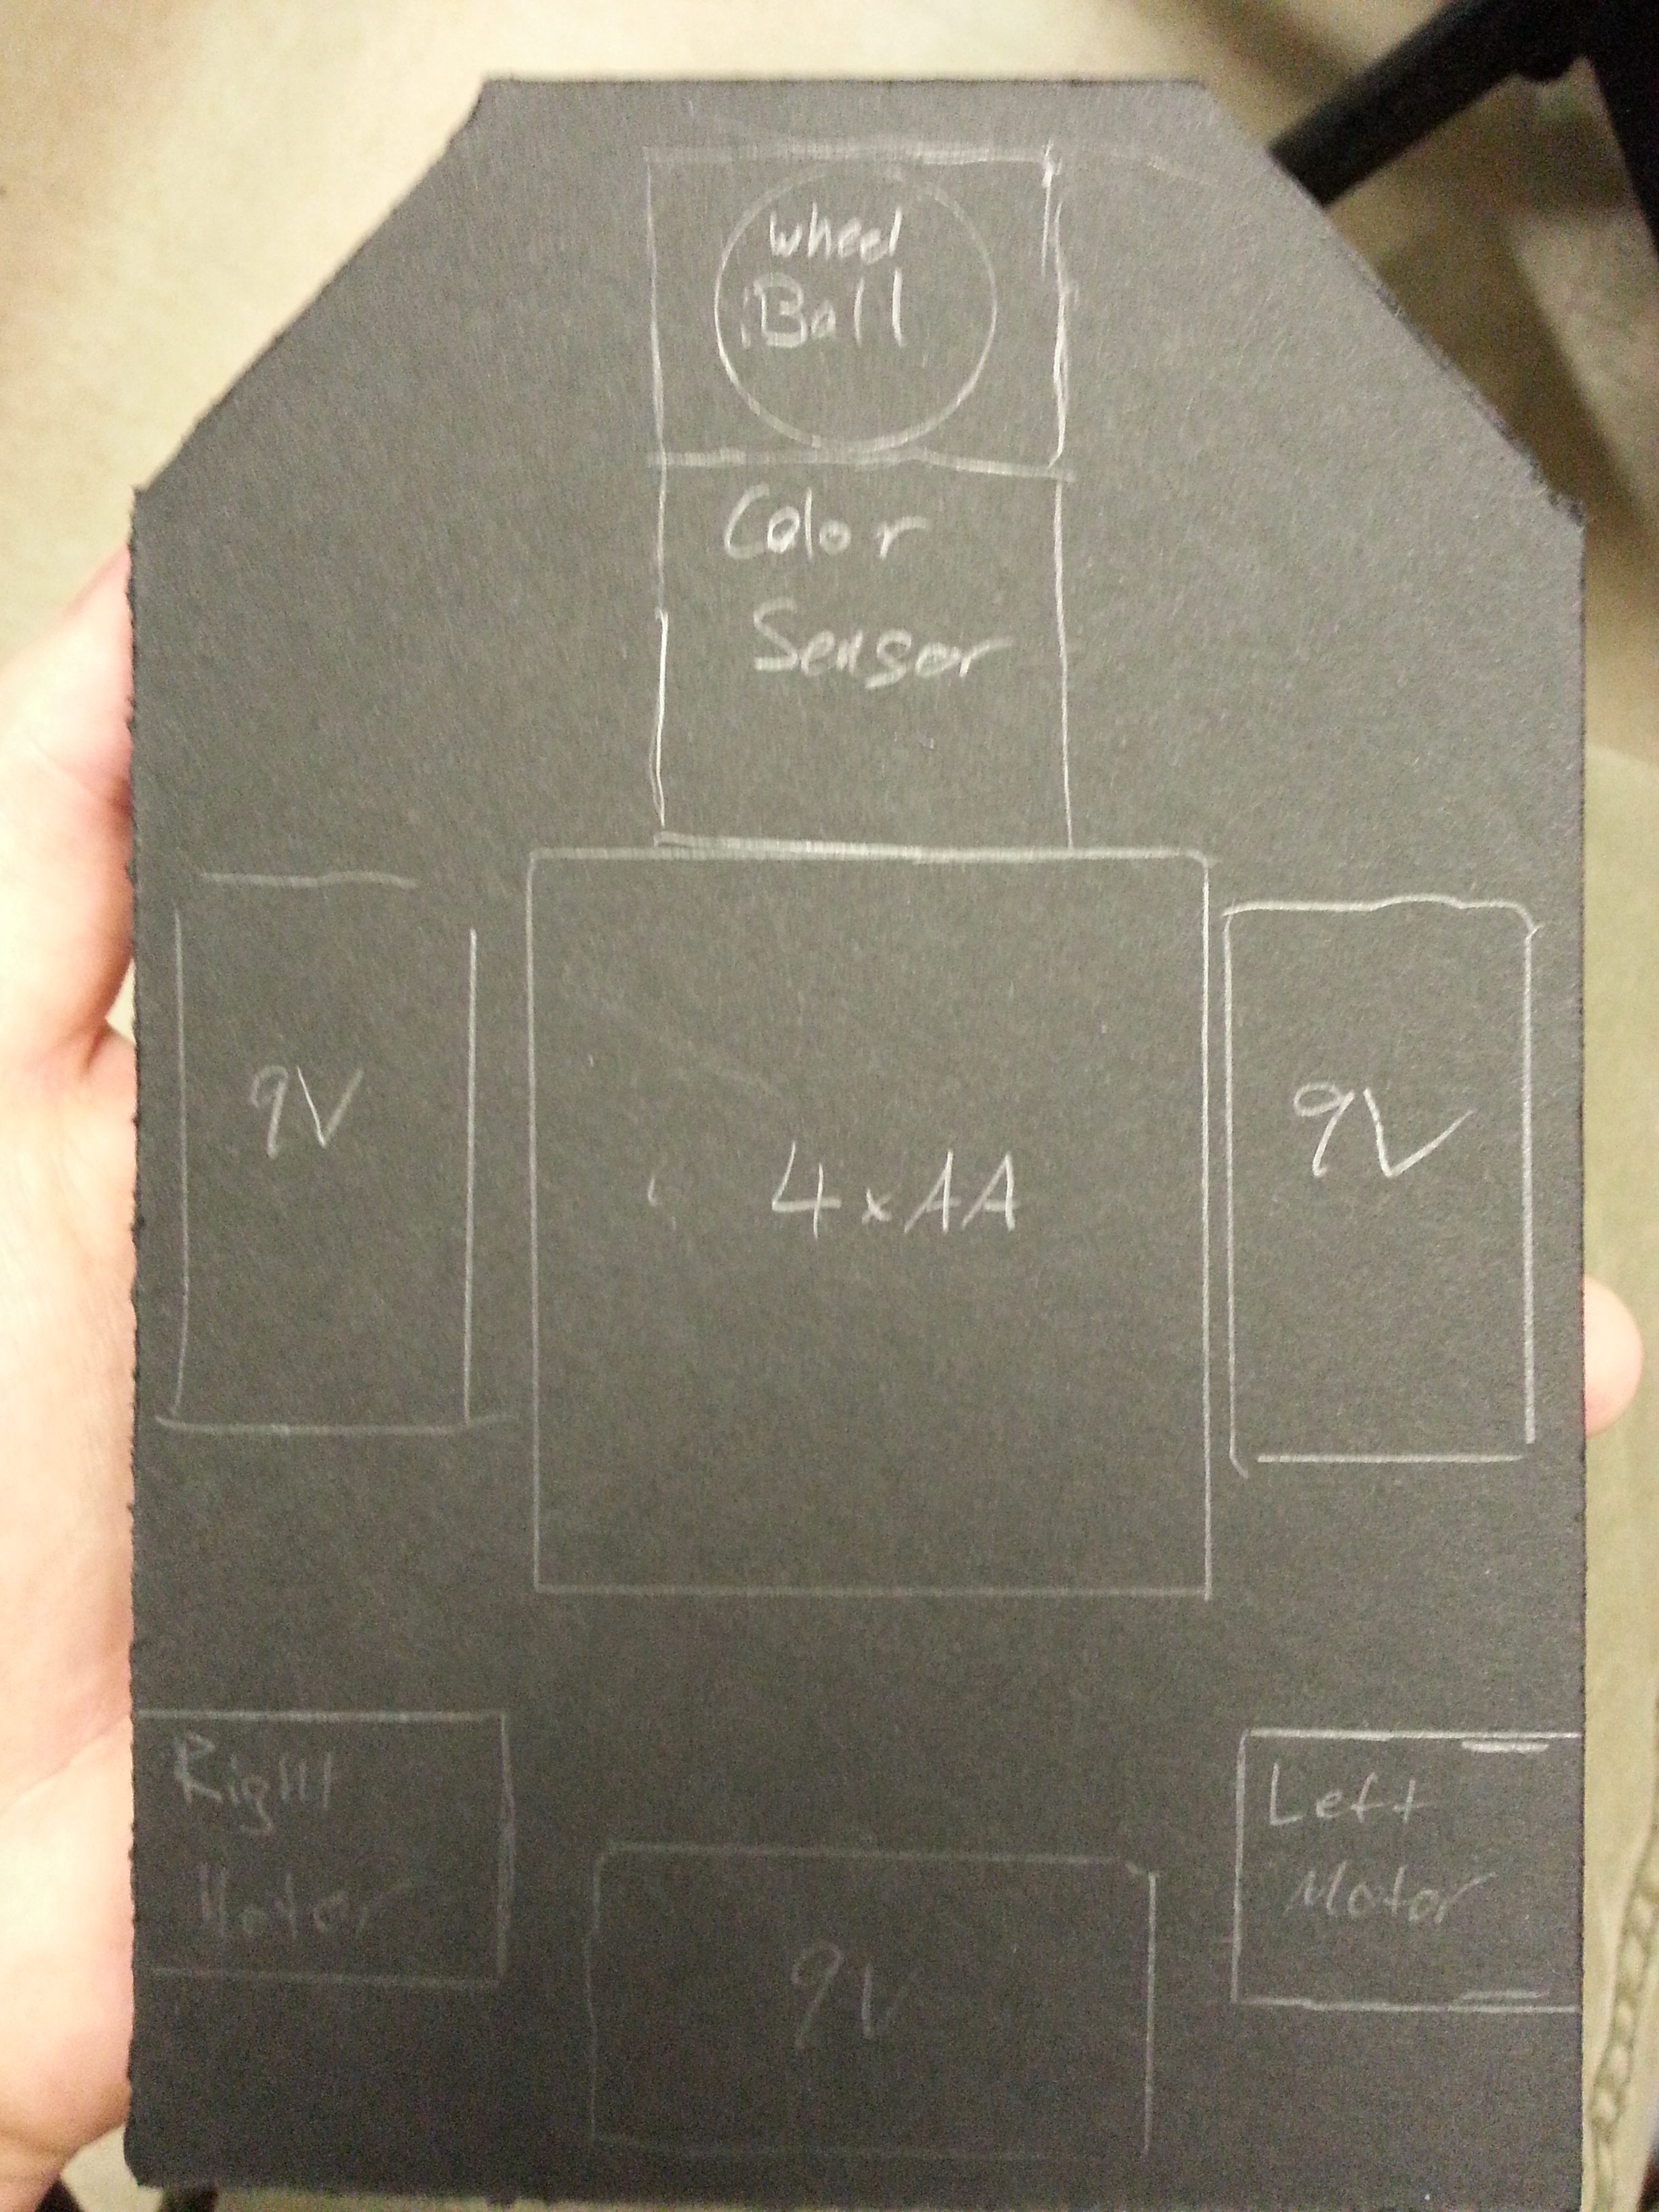 wheel
Ball
Color
Sensor
9V
4xAA
9V
Right
Motor
Left
Motor
9V